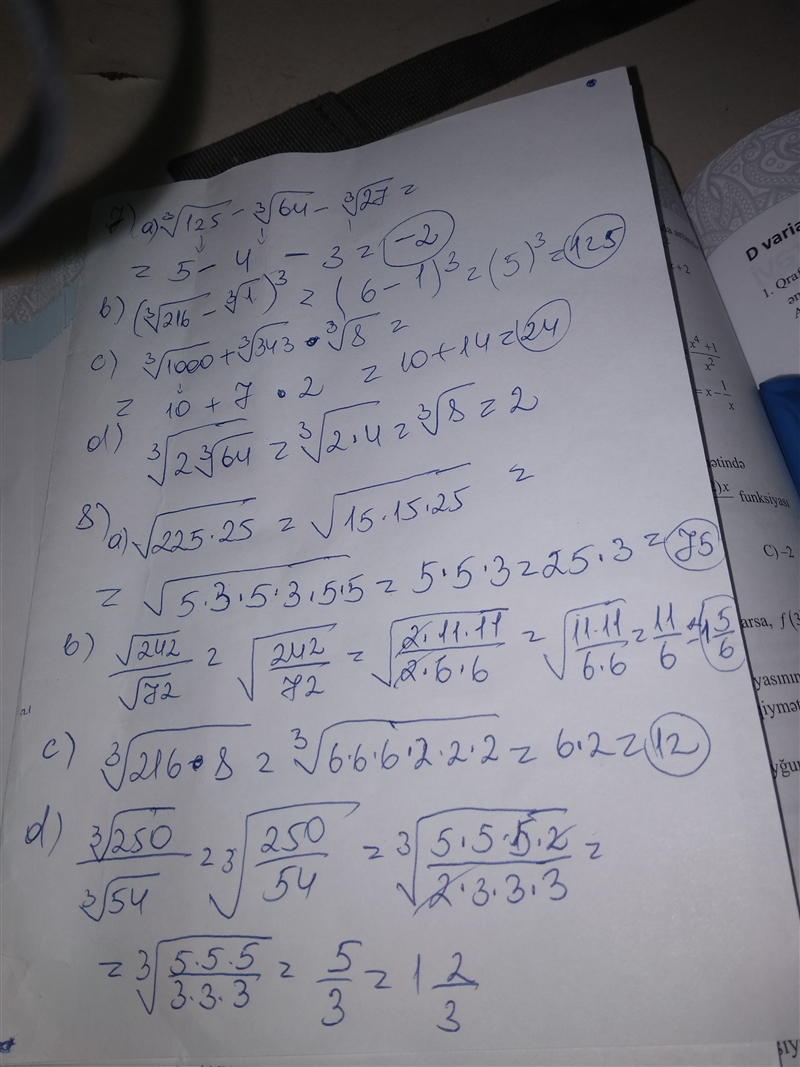 7) a) ∛125 - ∛64 - ∛27 =
= 5 - 4 - 3 = -2
b) (∛216 - ∛1)³ = (6 - 1)³ = (5)³ = 125
c) ∛1000 + ∛343 · ∛8 =
= 10 + 7 · 2 = 10 + 14 = 24
d) ∛(2∛64) = ∛(2·4) = ∛8 = 2
8) a) √(225·25) = √(15·15·25) =
= √(5·3·5·3·5·5) = 5·5·3 = 25·3 = 75
b) √242/√72 = √(242/72) = √((2·11·11)/(2·6·6)) = √((11·11)/(6·6)) = 11/6 = 1 5/6
c) ∛(216·8) = ∛(6·6·6·2·2·2) = 6·2 = 12
d) ∛250/∛54 = ∛(250/54) = ∛((5·5·5·2)/(2·3·3·3)) =
= ∛((5·5·5)/(3·3·3)) = 5/3 = 1 2/3
D varia
1. Qraf
x⁴+1/x²
= x - 1/x
ətində
funksiyası
C) -2
arsa, f(3
yasının
iymət
yğun